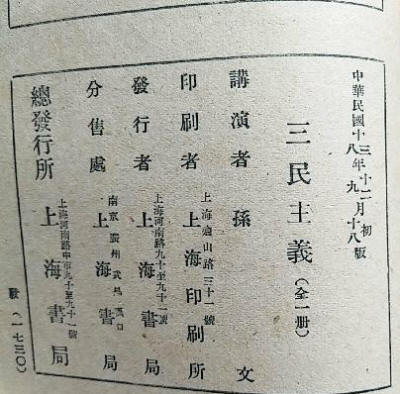 中華民國十三年十二月初版
八 九 十八
三民主義(全一册)
講演者 孫文
印刷者 上海山路三十一號 上海印刷所
發行者 上海河南路九十至九十一號 上海書局
分售處 南京 廣州 武昌 上海書局
總發行所 上海河南路中市九十至九十一號 上海書局
(一七三〇)